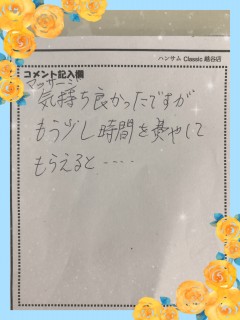 ハンサム Classic 越谷店
コメント記入欄
マッサージ
気持ち良かったですが
もう少し時間を費やして
もらえると‥‥